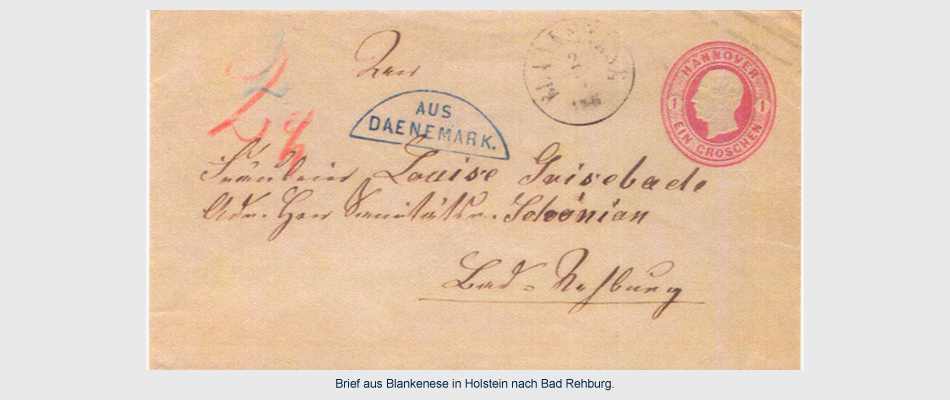 AUS
DAENEMARK.
HANNOVER
1 1
EIN GROSCHEN
Fräulein Louise Grisebach
Adr. Herr Sanitätsr. Schönian
Bad-Rehburg
Brief aus Blankenese in Holstein nach Bad Rehburg.